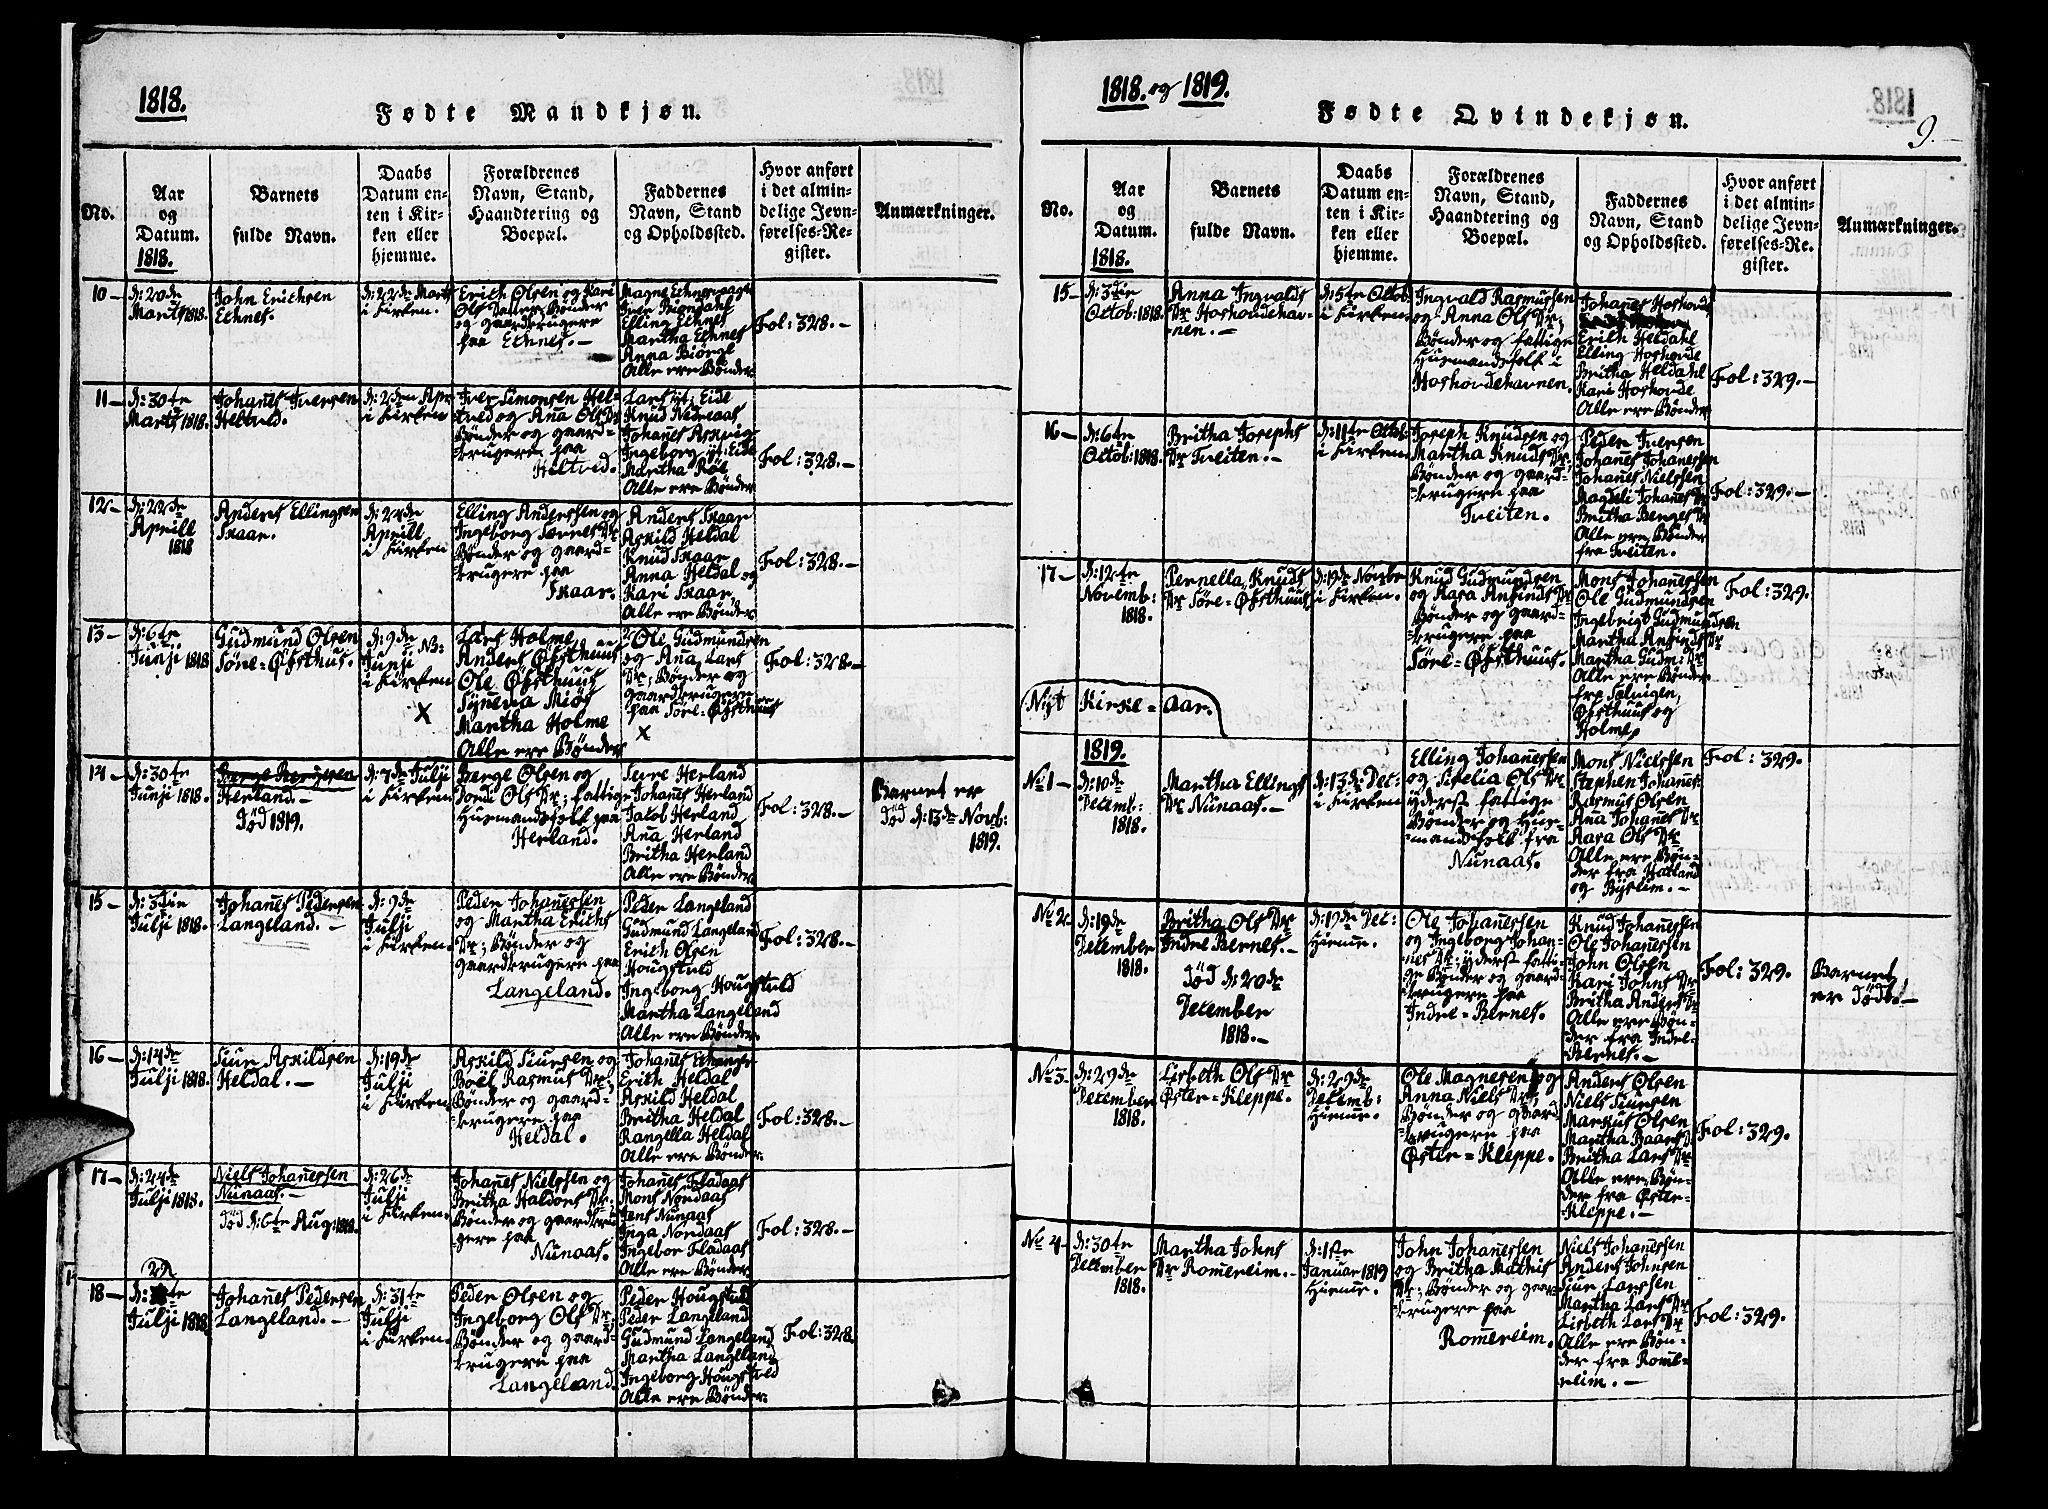 1818.
Fødte Mandkjøn.
No.
Aar
og
Datum.
1818.
Barnets
fulde Navn.
Daabs
Datum en-
ten i Kir-
ken eller
hjemme.
Forældrenes
Navn, Stand,
Haandtering og
Boepæl.
Faddernes
Navn, Stand
og Opholdssted.
Hvor anført
i det almin-
delige Jevn-
førelses-Re-
gister.
Anmærkninger.
10 -
d: 20de
Marts 1818.
John Erichsen
Echnes.
d: 22de Marts
i Kirken.
Erich Olsen og Kari
Ols Datter, Bønder
og gaardbrugere
paa Echnes. -
Magne Echnes
Iver Biørdahl
Elling Echnes
Martha Echnes
Anna Biørge
Alle ere Bønder
Fol: 328. -
11 -
d: 30te
Marts 1818.
Johanes Iversen
Heltved.
d: 2den Apr
i Kirken
Iver Simonsen Hel-
tved og Ana Ols Dr
Bønder og gaard-
brugere paa
Heltved.
Lars yt: Eide
Knud Nedreaas
Johanes Askvig
Ingeborg yt: Eide
Martha Røe
Alle ere Bønder
Fol: 328. -
12 -
d: 22de
Aprill
1818
Anders Ellingsen
Skaar.
d: 24de
Aprill
i Kirken
Elling Anderssen og
Ingeborg Dr
Bønder og gaard-
brugere paa
Skaar.
Anders Skaar
Askild Heldal
Knud Skaar
Anna Heldal og
Kari Skaar
Alle ere Bønder
Fol: 328. -
13 -
d: 6te
Junji 1818
Gudmund Olsen
Søre-Øfsthus.
d: 9de
Junji NB:
i Kirken
X
Lars Holme
Anders Øfsthuus
Ole Øfsthuus
Synneva Miøs
Martha Holme
Alle ere Bønder
Ole Gudmundsen
og Ana Lars
Dr; Bønder og
gaardbrugere
paa Søre-Øfsthuus
X
Fol: 328. -
14 -
d: 30te
Junji 1818.
Børge Børgesen
Herland. -
Død 1819.
d: 7de Julji
i Kirken
Børge Olsen og
Dordi Ols Dr; fattige
Huusmandsfolk paa
Herland.
Sevre Herland
Johanes Herland
Jacob Herland
Ana Herland
Britha Herland
Alle ere Bønder
Fol: 328. -
Barnet er
død d: 13de Novb:
1819.
15 -
d: 3die
Julji 1818.
Johanes Pedersen
Langeland. -
d: 9de
Julji
i Kirken
Peder Johanessen
og Martha Erichs
Dr; Bønder og
gaardbrugere paa
Langeland.
Peder Langeland
Gudmund Langeland
Erich Olsen
Hougstveld
Ingeborg Hougstveld
Martha Langeland
Alle ere Bønder
Fol: 328. -
16 -
d: 14de
Julji 1818.
Siur Askildsen
Heldal. -
d: 19de
Julji
i Kirken
Askild Siursen og
Boel Rasmus Dr;
Bønder og gaard-
brugere paa
Heldal.
Johanes Echanger
Erich Heldal
Askild Heldal
Britha Heldal
Rangella Heldal
Alle ere Bønder
Fol: 328. -
17 -
d: 24de
Julji 1818.
Niels Johanessen
Nunaas. -
Død d: 6te Aug: 1818.
d: 26de
Julji
i Kirken.
Johanes Nielssen og
Britha Haldors Dr.
Bønder og gaardbru
gere paa
Nunaas.
Johanes Fladaas
Mons Nordaas
Jens Nunaas
Inga Nordaas
Ingebor Fladaas
Alle ere Bønder
Fol: 328. -
18 -
29
d: te
Julji 1818
Johanes Pedersen
Langeland. -
d: 31te
Julji
i Kirken.
Peder Olsen og
Ingeborg Ols Dr;
Bønder og gaard-
brugere paa
Langeland.
Peder Hougstveld
Peder Langeland
Gudmund Langeland
Martha Langeland
Ingeborg Hougstveld
Alle ere Bønder
Fol: 328
1818. og 1819.
Fødte Qvindekjøn.
9.
No.
Aar
og
Datum.
1818.
Barnets
fulde Navn.
Daabs
Datum en-
ten i Kir-
ken eller
hjemme.
Forældrenes
Navn, Stand,
Haandtering og
Boepæl.
Faddernes
Navn, Stand
og Opholdssted.
Hvor anført
i det almin-
delige Jevn-
førelses-Re-
gister.
Anmærkninger.
15 -
d: 3die
Octob: 1818.
Anna Ingvalds
Dr Hoshovdehav-
nen. -
d: 5te Octob:
i Kirken.
Ingvald Rasmussen
og Anna Ols Dr;
Bønder og fattige
Huusmandsfolk i
Hoshovdehavnen.
Johanes Hoshovde
Erich Heldahl
Elling Hoshovde
Britha Heldahl
Kari Hoshovde
Alle ere Bønder
Fol: 329. -
16 -
d: 6te
Octob: 1818.
Britha Josephs
Dr Tveiten. -
d: 11te Octob:
i Kirken.
Joseph Knudsen og
Martha Knuds Dr;
Bønder og gaard-
brugere paa
Tveiten.
Peder Iversen
Johanes Johanessen
Johanes Nielssen
Magdeli Johanes Dr
Britha Berges Dr
Alle ere Bønder
fra Tveiten.
Fol: 329. -
17 -
d: 12te
Novemb:
1818.
Pernella Knuds
Dr Søre-Øfsthuus
d: 19de Novbr
i Kirken.
Knud Gudmundsen
og Kara Anfinds Dr
Bønder og gaard-
brugere paa
Søre-Øfsthuus.
Mons Johanessen
Ole Gudmundsen
Ingebrigt Gudmundsen
Martha Anfinds Dr
Martha Gudm: Dr
Alle ere Bønder
fra Sælvigen,
Øfsthuus og
Holme
Fol: 329.
Nyt Kirke-Aar.
1819.
No 1 -
d: 10de
Decemb:
1818.
Martha Ellings
Dr Nunaas. -
d: 13de Dec:
i Kirken
Elling Johanessen
og Sitselia Ols Dr
yderst fattige
Bønder og Huus-
mandsfolk fra
Nunaas.
Mons Nielssen
Stephen Johanes:
Rasmus Olsen
Ana Johanes Dr
Kara Ols Dr
Alle ere Bøn-
der fra Hatland
og Byslim. -
Fol: 329.
No 2
d: 19de
December
1818.
Britha Ols Dr
Indre Bernes. -
Død d: 20de
December
1818. -
d: 19de Dec:
Hiemme.
Ole Johanessen
og Ingeborg Johan-
nes Dr; yderst fatti-
ge Bønder og gaard-
brugere paa
Indre-Bernes.
Knud Johanessen
Ole Johanessen
John Olsen
Kari Johns Dr
Britha Anders Dr
Alle ere Bøn-
der fra Indre-
Bernes. -
Fol: 329.
Barnet
er død. -
No 3 -
d: 29de
December
1818.
Lisbeth Ols Dr
Øster-Kleppe. -
d: 29de
Decemb:
Hiemme.
Ole Magnesen og
Anna Niels Dr;
Bønder og gaard
brugere paa
Øster-Kleppe.
Anders Olsen
Niels Siursen
Markus Olsen
Martha Baars D
Britha Lars Dr
Alle ere Bøn-
der fra Øster-
Kleppe. -
Fol: 329.
No 4 -
d: 30te
December
1818.
Martha Johns
Dr Romereim. -
d: 1ste
Januar 1819
Hiemme.
John Johanessen
og Britha Mathis
Dr; Bønder og gaard
brugere paa
Romereim.
Niels Johanessen
Anders Johnsen
Siur Larssen
Martha Lars Dr
Lisbeth Lars Dr
Alle ere Bøn-
der fra Rome-
reim. -
Fol: 329.